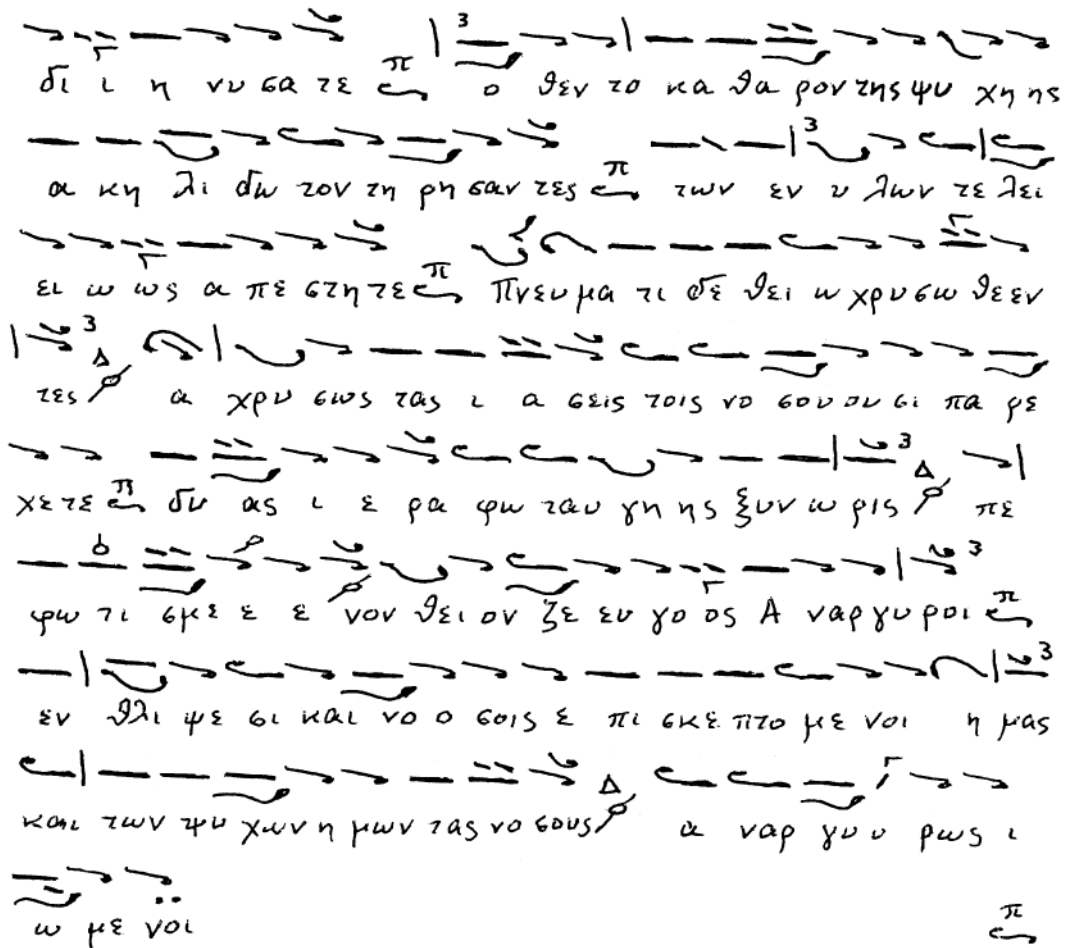 δι ι η νυ σα τε π ο θεν το κα θα ρον της ψυ χη ης
α κη λι δω τον τη ρη σαν τες π των εν υ λων τε λει
ει ω ως α πε στη τε π Πνευ μα τι δε θει ω χρυ σω θε εν
τες Δ α χρυ σως τας ι α σεις τοις νο σου ου σι πα ρε
χε τε π δυ ας ι ε ρα φω ταυ γη ης ξυν ω ρις Δ πε
φω τι σμε ε ε νον θει ον ζε ευ γο ος Α ναρ γυ ροι π
εν θλι ψε σι και νο ο σοις ε πι σκε πτο με νοι η μας
και των ψυ χων η μων τας νο σους Δ α ναρ γυ υ ρως ι
ω με νοι π